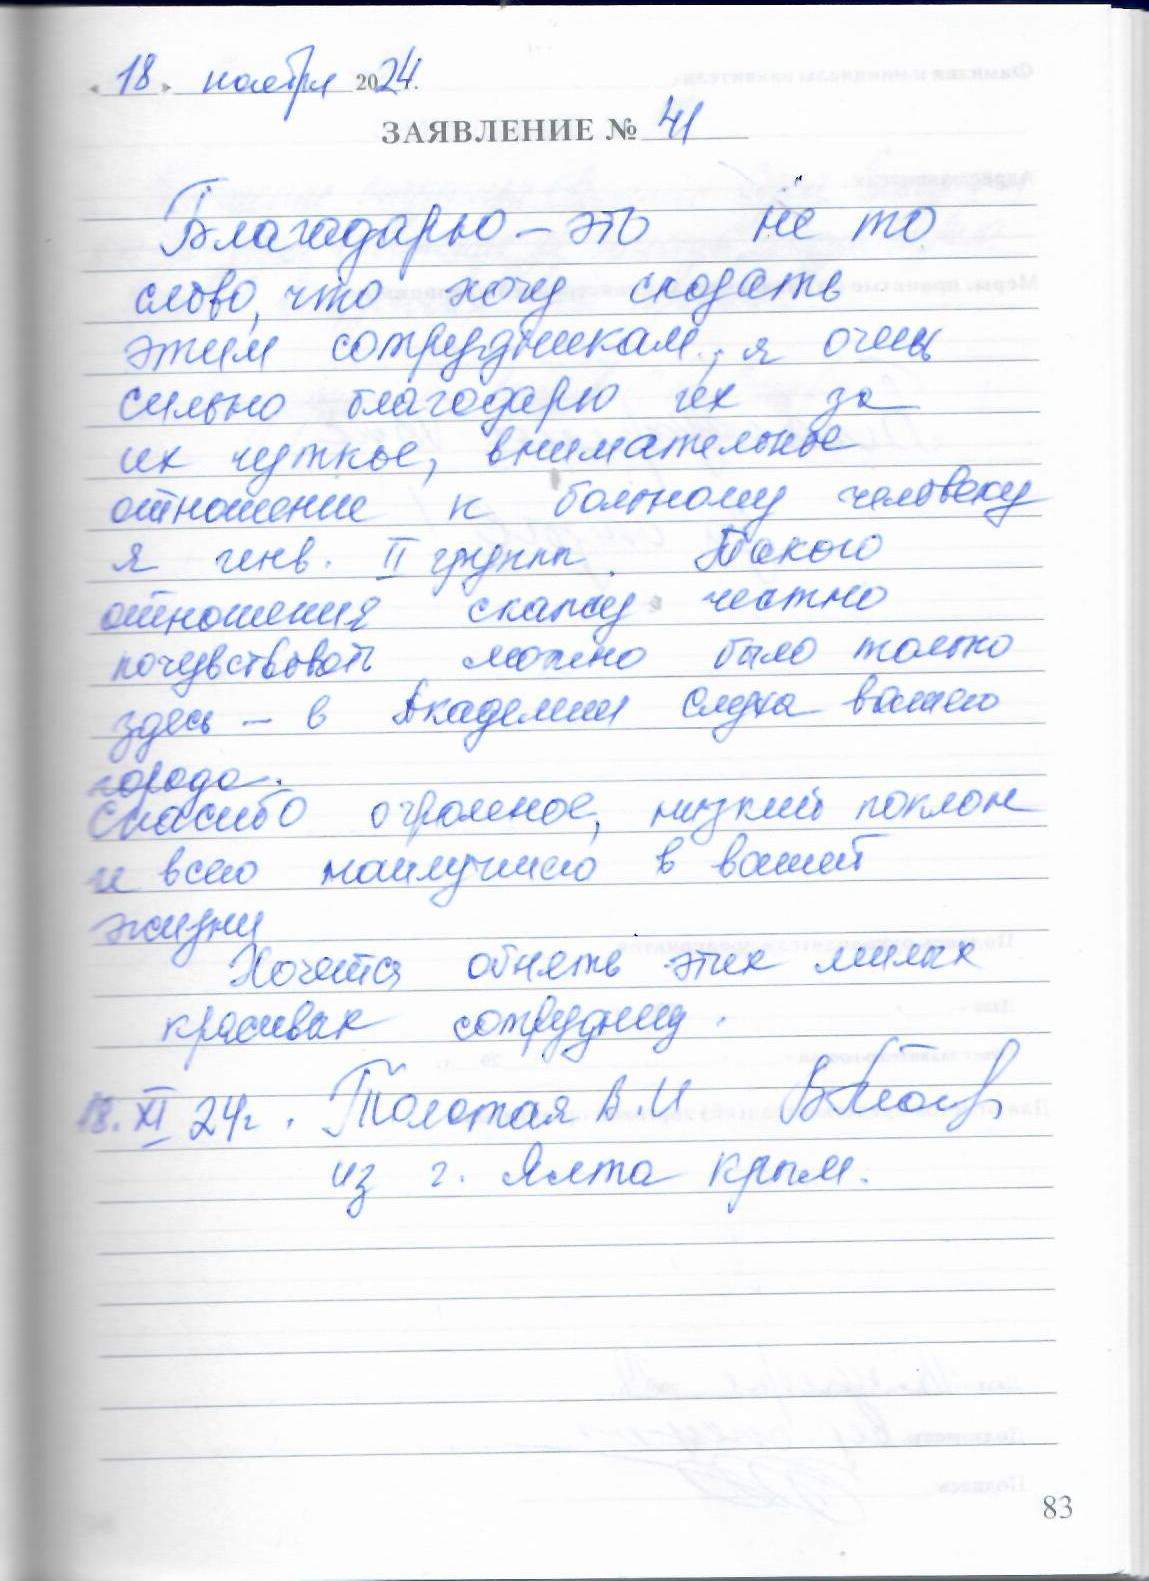 « 18 » ноября 2024 г.
ЗАЯВЛЕНИЕ № 41
Благодарю – это не то
слово, что хочу сказать
этим сотрудникам, я очень
сильно благодарю их за
их чуткое, внимательное
отношение к больному человеку
я инв. II групп. Такого
отношения скажу честно
почувствовать можно было только
здесь – в Академии слуха вашего
города.
Спасибо огромное, низкий поклон
и всего наилучшего в вашей
жизни
Хочется обнять этих милых
красивых сотрудниц.
18. XI 24г. Толотая В.И
из г. Ялта Крым.
83